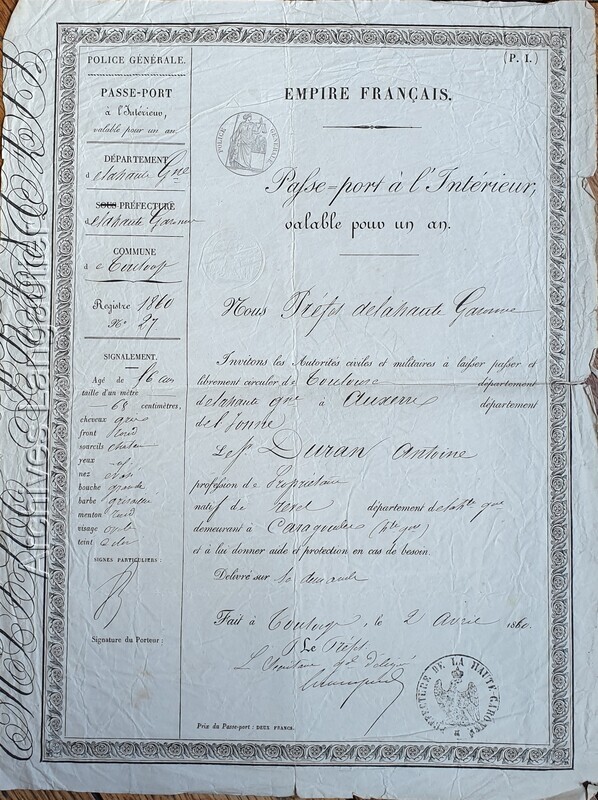 POLICE GÉNÉRALE.
PASSE-PORT
à l'Intérieur,
valable pour un an.
DÉPARTEMENT
delahaute Gne
SOUS PRÉFECTURE
delahaute Garonne
COMMUNE
d
Registre 1860
No 27
SIGNALEMENT.
Agé de 56 ans
taille d'un mètre
68 centimètres,
cheveux gris
front rond
sourcils chatain
yeux
nez
bouche grande
barbe
menton rond
visage ovale
teint
SIGNES PARTICULIERS :
Signature du Porteur :
(P. I.)
EMPIRE FRANÇAIS.
POLICE GÉNÉRALE
Passe=port à l'Intérieur,
valable pour un an.
Nous Préfet delahaute Garonne
Invitons les Autorités civiles et militaires à laisser passer et
librement circuler de Toulouse département
delahaute gne à Auxerre département
de l'Yonne
Le Sr Duran Antoine
profession de Propriétaire
natif de Revel département delahte gne
demeurant à Caragoudes (hte gne)
et à lui donner aide et protection en cas de besoin.
Délivré sur sa demande
Fait à Toulouse, le 2 Avril 1860.
P Le Préfet
Le Secrétaire gal délégué
PRÉFECTURE DE LA HAUTE-GARONNE
Prix du Passe-port : DEUX FRANCS.